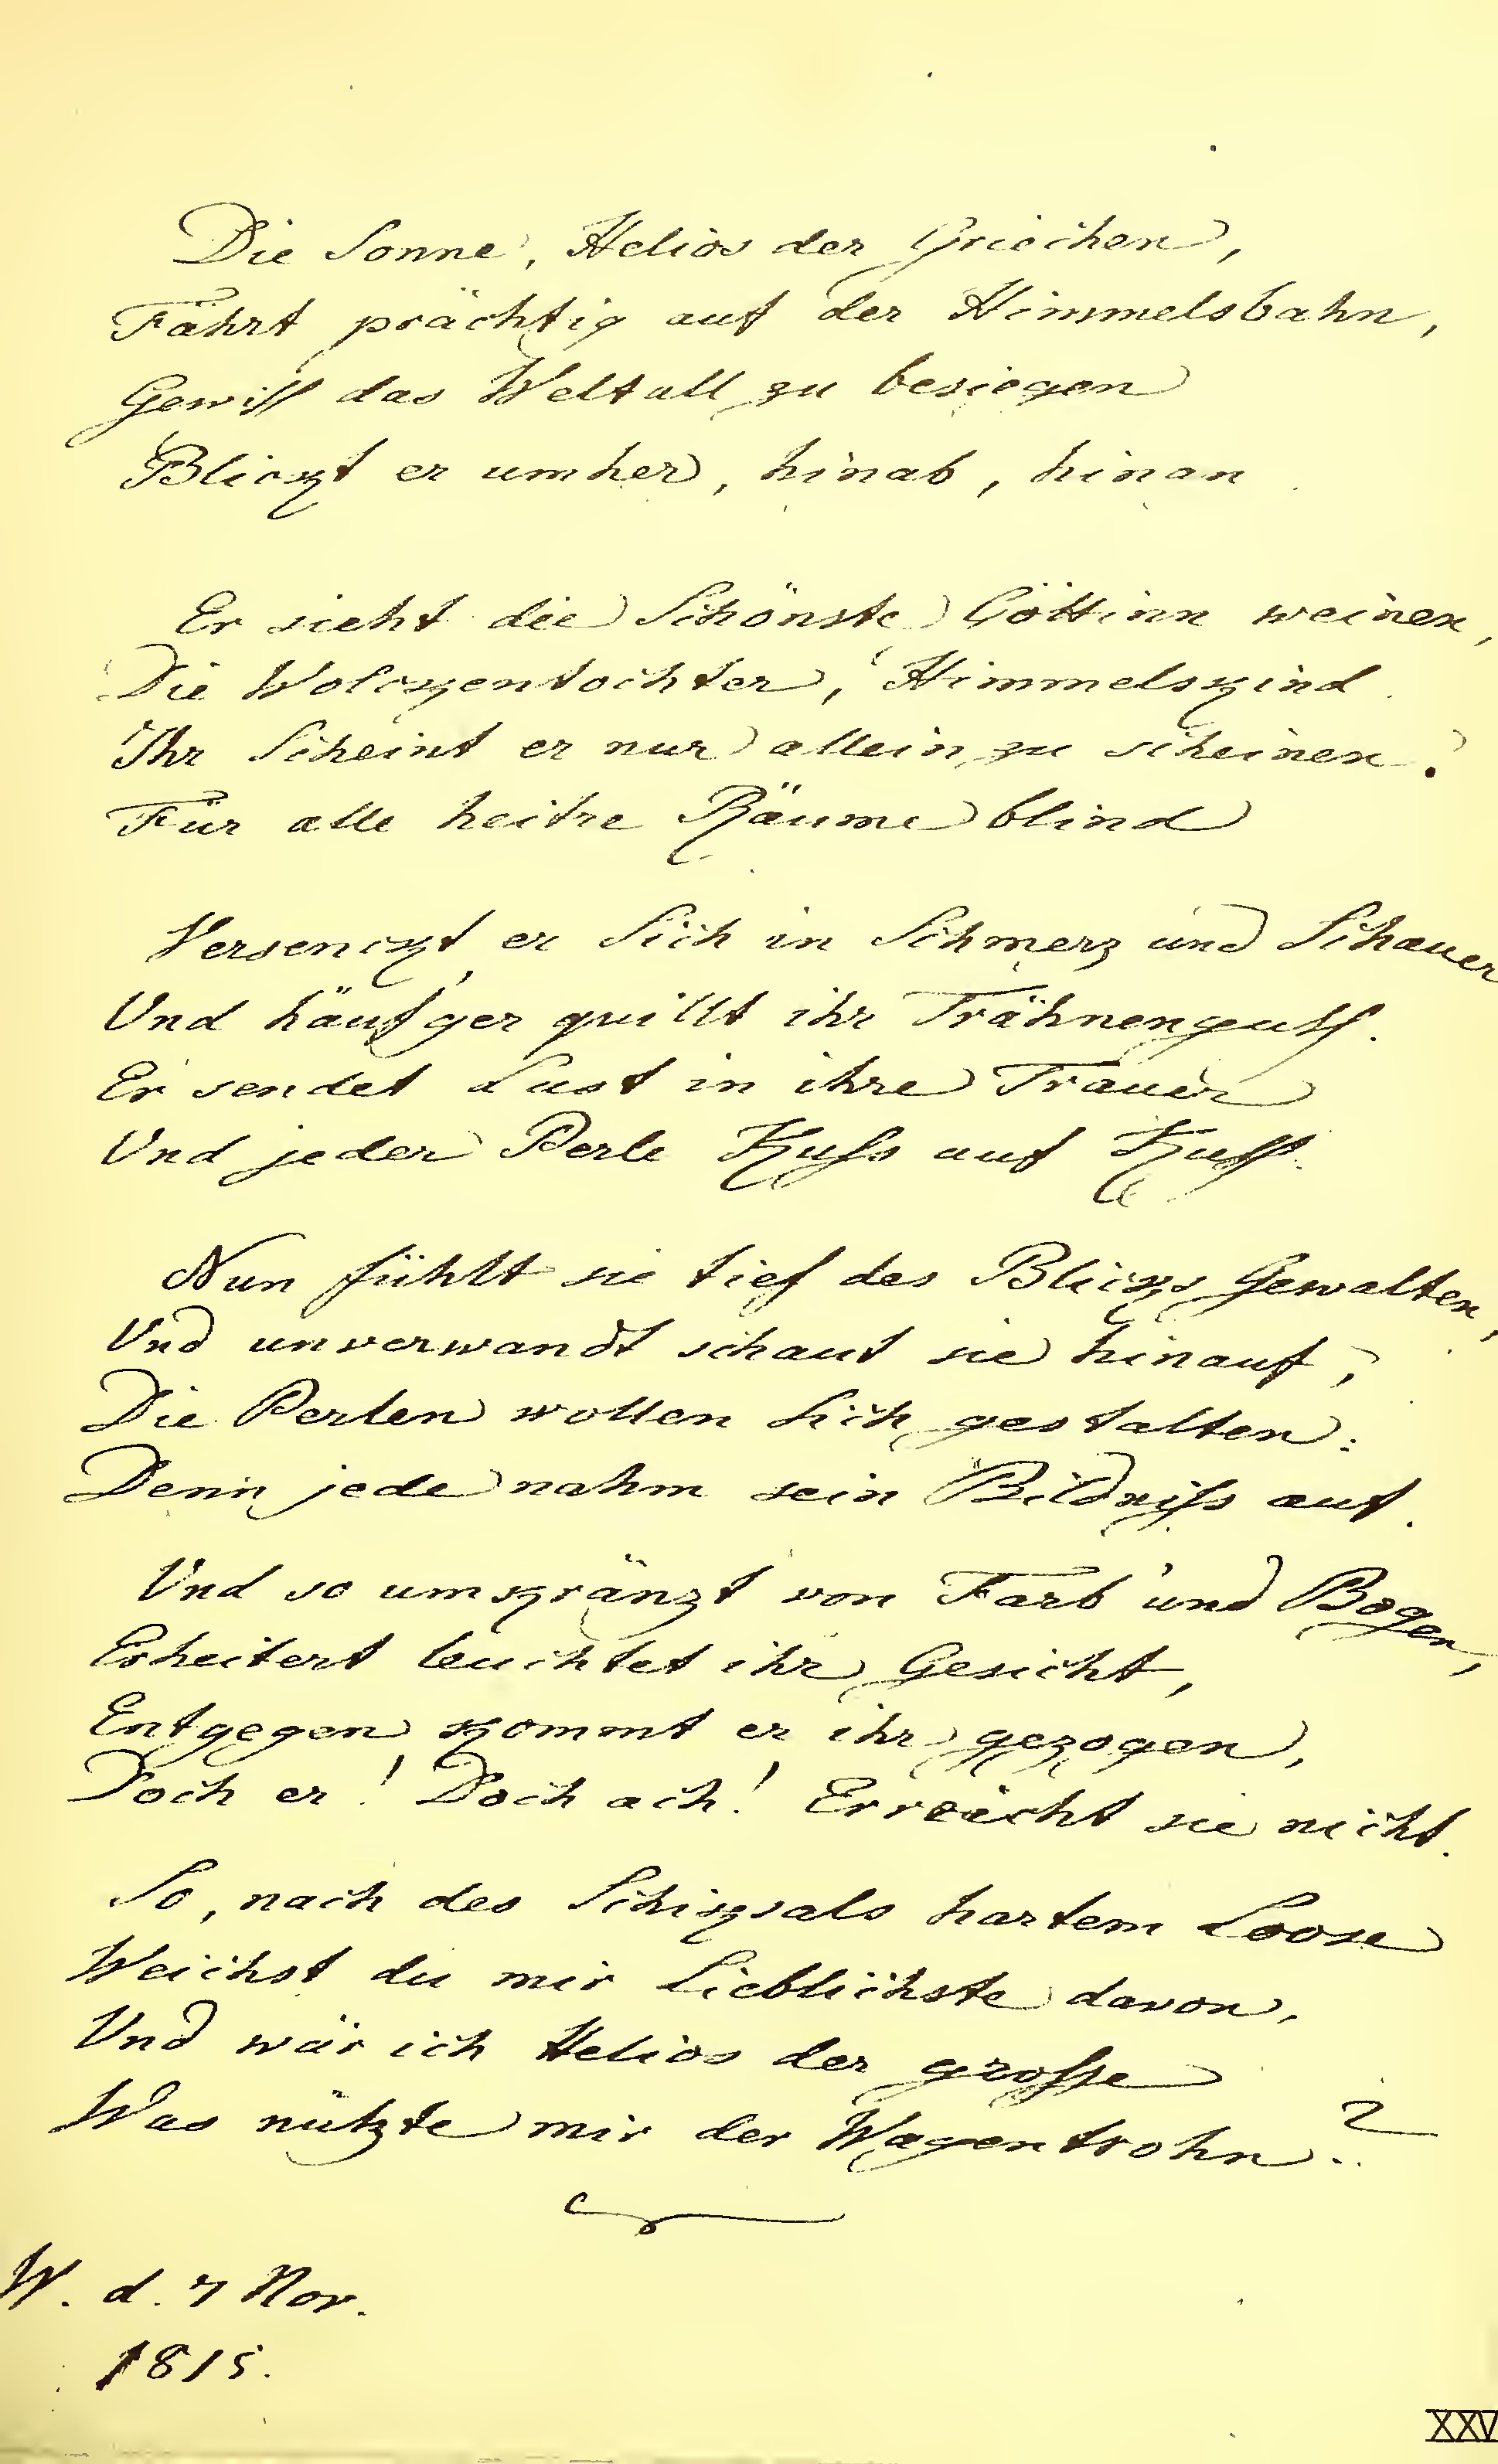 Die Sonne, Helios der Griechen,
Fährt prächtig auf der Himmelsbahn,
Gewiss das Weltall zu besiegen
Blickt er umher, hinab, hinan.
Er sieht die Schönste Göttinn weinen,
Die Wolckentochter, Himmelskind.
Ihr Scheint er nur allein zu scheinen.
Für alle heitre Räume blind
Versenckt er Sich in Schmerz und Schauer
Und häuf'ger quillt ihr Trähnenguss.
Er sendet Lust in ihre Trauer
Und jeder Perle Kuss auf Kuss.
Nun fühlt sie tief des Blicks Gewalten,
Und unverwandt schaut sie hinauf;
Die Perlen wollen Sich gestalten:
Denn jede nahm sein Bildniss auf.
Und so umkränzt von Farb und Bogen,
Erheitert leuchtet ihr Gesicht,
Entgegen kommt er ihr gezogen,
Doch er! Doch ach! Erreicht sie nicht.
So, nach des Schiksals hartem Loose
Weichst du mir Lieblichste davon,
Und wär ich Helios der grosse
Was nützte mir der Wagentrohn?
W. d. 7 Nov.
1815.
XXV